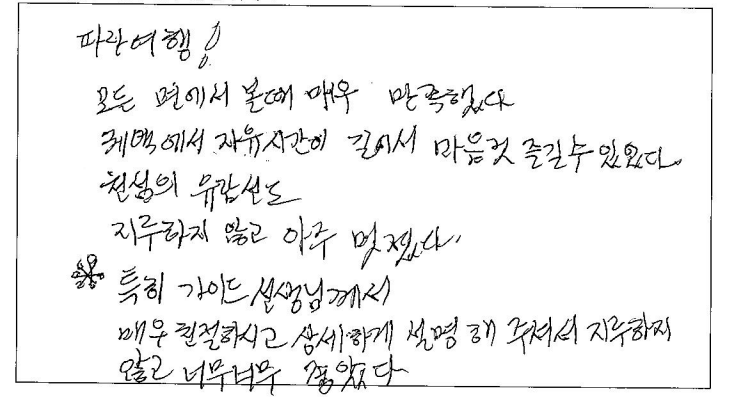 파란여행!
모든 면에서 볼때 매우 만족했다
퀘백에서 자유시간이 길어서 마음껏 즐길수 있었다.
천섬의 유람선도
지루하지 않고 아주 멋졌다.
※ 특히 가이드 선생님께서
매우 친절하시고 상세하게 설명 해 주셔서 지루하지
않고 너무너무 좋았다